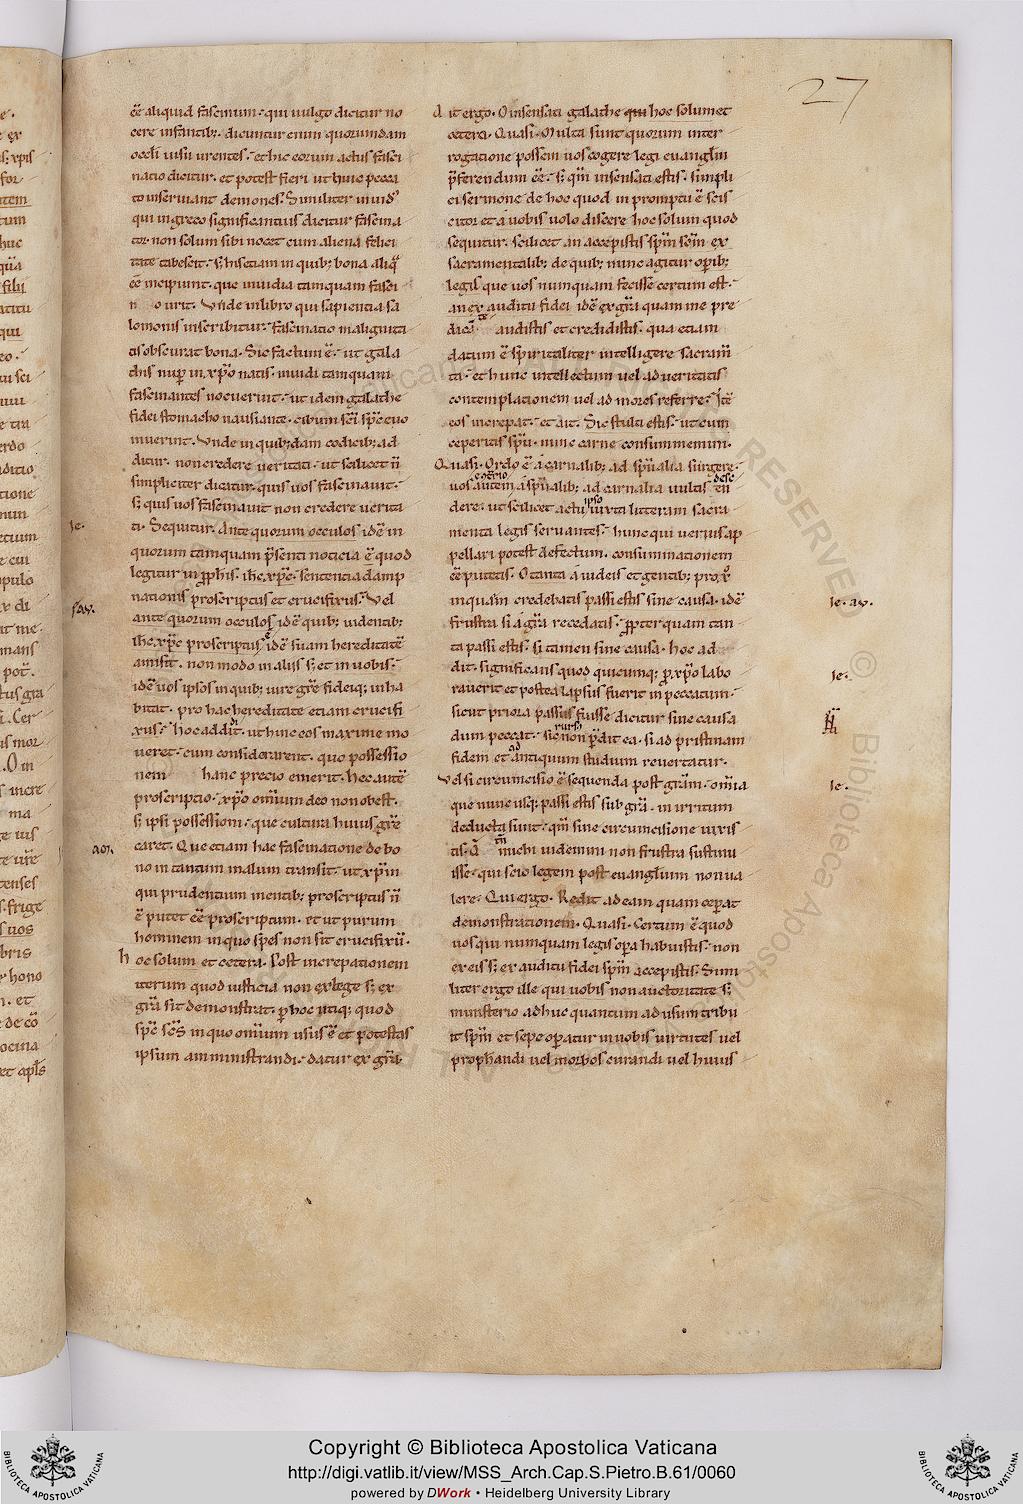 27
ēē aliquid fascinum · qui uulgo dicitur no
cere infantib; · dicuntur enim quorumdam
occli uisu urentes · et hic eorum actus fasci
natio dicitur · et potest fieri ut huic pecca
to inseruiant demones · Similiter inuidꝰ
qui in greco significantius dicitur fascina
tor · non solum sibi nocet cum aliena felici
tate tabescit · s; his etiam in quib; bona aliq̄
ēē incipiunt · que inuidia tamquam fasci
n o urit · Vnde in libro qui sapientia sa
lomonis inscribitur · fascinatio malignita
tis obscurat bona · Sic factum ē · ut gala
this nup̱ in xp̄o natis · inuidi tamquam
fascinantes nocuerint · ut idem galathe
fidei stomacho nausiante · cibum sc̄i sp̄c euo
muerint · Vnde in quib;dam codicib; ad
ditur · non credere ueritati · ut scilicet n̄
simpliciter dicatur · quis uos fascinauit ·
s; quis uos fascinauit non credere uerita
ti · Sequitur · Ante quorum occulos idē in
quorum tamquam p̄senti noticia ē quod
legitur in p̱phis · ih̄c xp̄c · sententia dāmp
nationis proscriptus et crucifixus · Vel
ante quorum occulos idē quib; uidentib;
ih̄c xp̄c proscriptus ē idē suam hereditatē
amisit · non modo in aliis s; et in uobis ·
idē uos ipsos in quib; iure grē fideiq; inha
bitat · pro hac hereditate etiam crucifi
xus · hoc addidit · ut hinc eos maxime mo
ueret · cum considerarent · quo possessio
nem hanc precio emerit · Hec autē
proscriptio · xp̄o om̄ium deo non obest ·
s; ipsi possessioni · que cultura huius grē
caret · Que etiam hac fascinatione de bo
no in tantum malum transit · ut xp̄m
qui prudentium mentib; proscriptus n̄
ē putet ēē proscriptum · et ut purum
hominem in quo spes non sit crucifixū ·
hoc solum et cetera · Post increpationem
iterum quod iusticia non ex lege s; ex
grā sit demonstrat · p̱ hoc utiq; quod
sp̄c sc̄s in quo om̄ium usus ē et potestas
ipsum amministrandi · datur ex grā ·
Ait ergo · O insensati galathe hoc solum et
cetera · Quasi · Multa sunt quorum inter
rogatione possem uos cogere legi euanglm
p̄ferendum ēē · s; qm̄ insensati estis · simpli
ci sermone de hoc quod in promptu ē scis
citor et a uobis uolo discere hoc solum quod
sequitur · scilicet an accepistis sp̄m sc̄m ex
sacramentalib; de quib; nunc agitur op̱ib;
legis que uos numquam fecisse certum est ·
an ex auditu fidei idē ex grā quam me pre
dicāte audistis et credidistis · qua etiam
datum ē spiritaliter intelligere sacram̄
ta · et hunc intellectum uel ad ueritatis
contemplationem uel ad mores referre · Itē
eos increpat · et ait · Sic stulti estis · ut cum
ceperitis sp̄u · nunc carne consummemini ·
Quasi · Ordo ē a carnalib; ad sp̄ualia surgere ·
uos autem e cōtrio a sp̄ualib; ad carnalia uultis desc̄en
dere · ut scilicet actu ipso iuxta litteram sacra
menta legis seruantes · hunc qui uerius ap
pellari potest defectum · consummationem
ēē putetis · O tanta a iudeis et gentib; pro xp̄o
inquam credebatis passi estis sine causa · idē
frustra si a grā recedatis · p̱pter quam tan
ta passi estis · si tamen sine causa · hoc ad
dit · significans quod quicumq; p̱ xp̄o labo
rauerit et postea lapsus fuerit in peccatum ·
sicut priora passus fuisse dicitur sine causa
dum peccat · sic rursus non p̱dit ea · si ad pristinam
fidem et ad antiquum studium reuertatur ·
Vel si circumcisio ē sequenda post grām · om̄ia
que nunc usq; passi estis sub grā · in irritum
deducta sunt · qm̄ sine circumcisione uixis
tis · Q tn̄ michi uidemini non frustra sustinu
isse · qui scio legem post euanglium non ua
lere · Qui ergo · Redit ad eam quam cep̱at
demonstrationem · Quasi · Certum ē quod
uos qui numquam legis op̱a habuistis · non
ex eis s; ex auditu fidei sp̄m accepistis · Simi
liter ergo ille qui uobis non auctoritate s;
ministerio adhuc quantum ad usum tribu
it sp̄m et sepe op̱atur in uobis uirtutes uel
prophandi uel morbos curandi uel huius
Ie.
aug.
Ie. aug.
Ie.
Ie.
Copyright © Biblioteca Apostolica Vaticana
http://digi.vatlib.it/view/MSS_Arch.Cap.S.Pietro.B.61/0060
powered by DWork • Heidelberg University Library
BIBLIOTECA APOSTOLICA VATICANA
BIBLIOTECA APOSTOLICA VATICANA